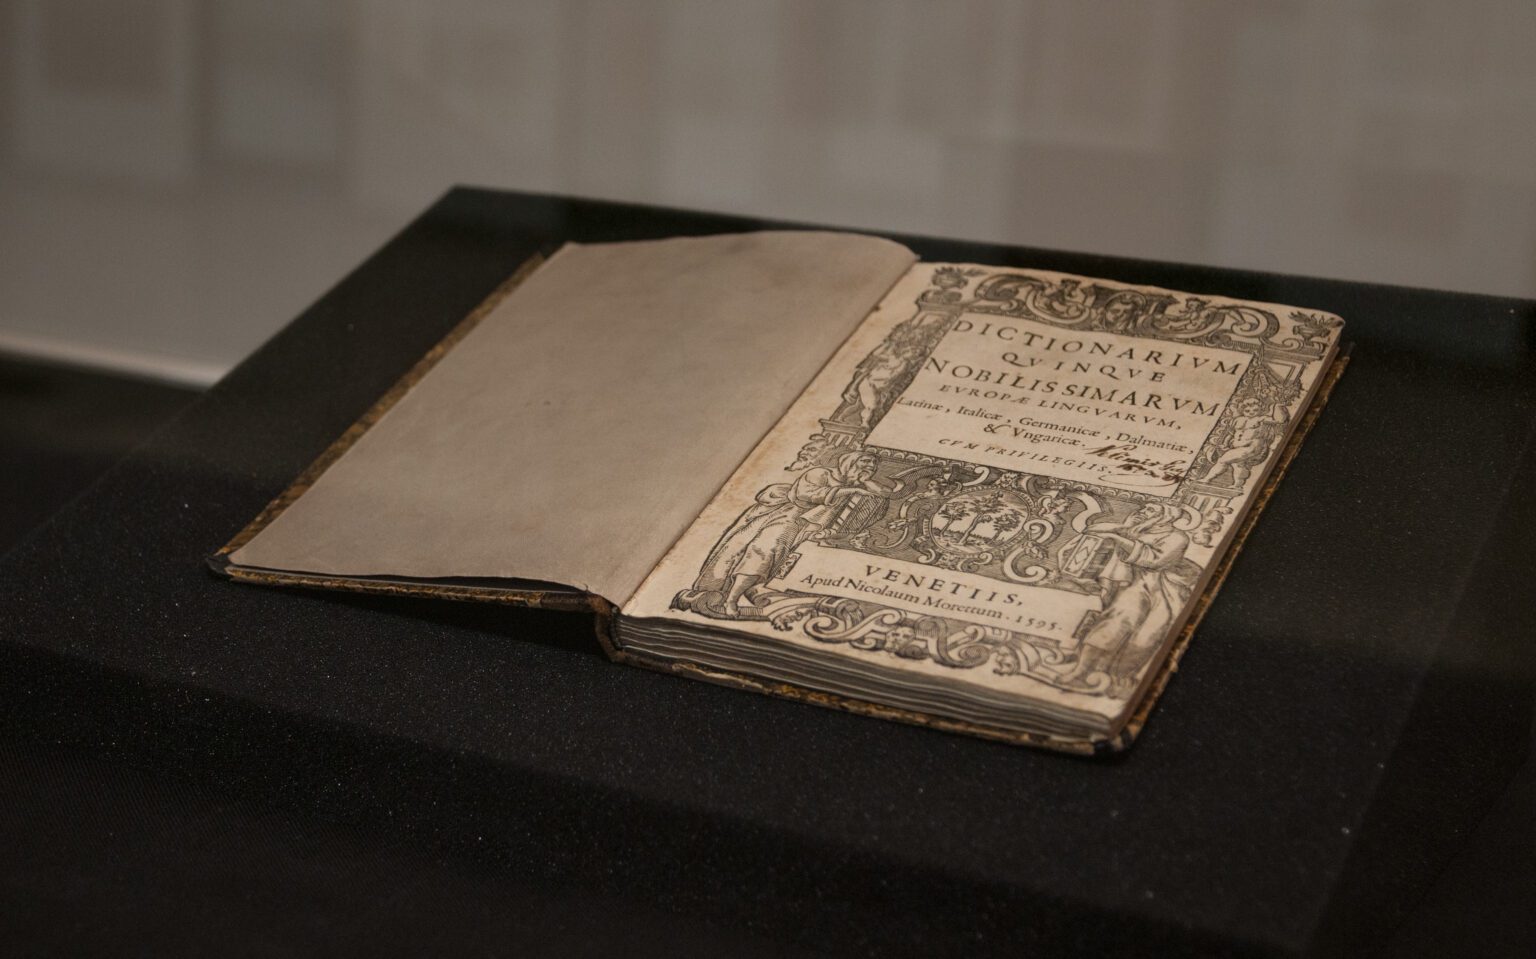 DICTIONARIVM
QVINQVE
NOBILISSIMARVM
EVROPÆ LINGVARVM,
Latinæ, Italicæ, Germanicæ, Dalmatiæ,
& Vngaricæ.
CVM PRIVILEGIIS.
VENETIIS,
Apud Nicolaum Morettum. 1595.